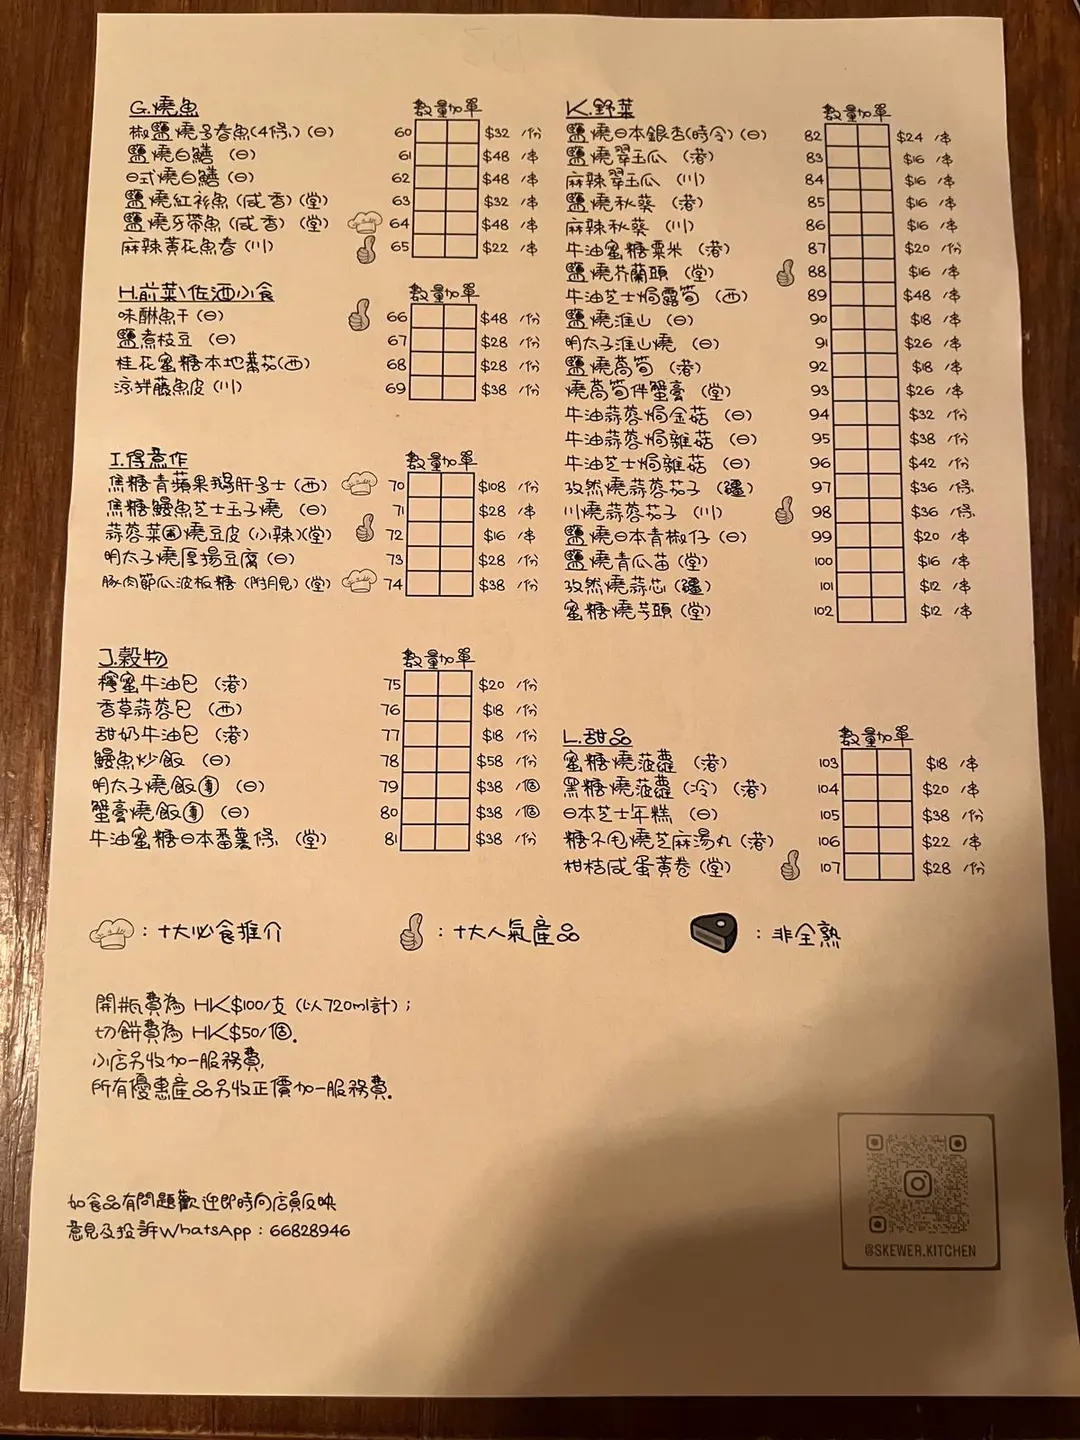 G.燒魚 數量加單
椒鹽燒多春魚(4條)(日) 60 $32 /份
鹽燒白鱔 (日) 61 $48 /串
日式燒白鱔 (日) 62 $48 /串
鹽燒紅衫魚 (咸香) (堂) 63 $32 /串
鹽燒牙帶魚 (咸香) (堂) 64 $48 /串
麻辣黃花魚春 (川) 65 $22 /串
H.前菜\佐酒小食 數量加單
味醂魚干 (日) 66 $48 /份
鹽煮枝豆 (日) 67 $28 /份
桂花蜜糖本地蕃茄(西) 68 $28 /份
涼拌藤魚皮 (川) 69 $38 /份
I.得意作 數量加單
焦糖青蘋果鵝肝多士 (西) 70 $108 /份
焦糖鰻魚芝士玉子燒 (日) 71 $28 /串
蒜蓉菜圃燒豆皮 (小辣)(堂) 72 $16 /串
明太子燒厚揚豆腐 (日) 73 $28 /份
豚肉節瓜波板糖 (附月見) (堂) 74 $38 /份
J.穀物 數量加單
檸蜜牛油包 (港) 75 $20 /份
香草蒜蓉包 (西) 76 $18 /份
甜奶牛油包 (港) 77 $18 /份
鰻魚炒飯 (日) 78 $58 /份
明太子燒飯團 (日) 79 $38 /個
蟹膏燒飯團 (日) 80 $38 /個
牛油蜜糖日本番薯條 (堂) 81 $38 /份
K.野菜 數量加單
鹽燒日本銀杏(時令) (日) 82 $24 /串
鹽燒翠玉瓜 (港) 83 $16 /串
麻辣翠玉瓜 (川) 84 $16 /串
鹽燒秋葵 (港) 85 $16 /串
麻辣秋葵 (川) 86 $16 /串
牛油蜜糖粟米 (港) 87 $20 /份
鹽燒芥蘭頭 (堂) 88 $16 /串
牛油芝士焗露筍 (西) 89 $48 /串
鹽燒淮山 (日) 90 $18 /串
明太子淮山燒 (日) 91 $26 /串
鹽燒萵筍 (港) 92 $18 /串
燒萵筍伴蟹膏 (堂) 93 $26 /串
牛油蒜蓉焗金菇 (日) 94 $32 /份
牛油蒜蓉焗雜菇 (日) 95 $38 /份
牛油芝士焗雜菇 (日) 96 $42 /份
孜然燒蒜蓉茄子 (疆) 97 $36 /條
川燒蒜蓉茄子 (川) 98 $36 /條
鹽燒日本青椒仔 (日) 99 $20 /串
鹽燒青瓜苗 (堂) 100 $16 /串
孜然燒蒜芯 (疆) 101 $12 /串
蜜糖燒芋頭 (堂) 102 $12 /串
L.甜品 數量加單
蜜糖燒菠蘿 (港) 103 $18 /串
黑糖燒菠蘿 (冷) (港) 104 $20 /串
日本芝士年糕 (日) 105 $38 /份
糖不甩燒芝麻湯丸 (港) 106 $22 /串
柑桔咸蛋黃卷 (堂) 107 $28 /份
: 十大必食推介 : 十大人氣產品 : 非全熟
開瓶費為 HK$100/支 (以720ml計) ;
切餅費為 HK$50/個.
小店另收加一服務費,
所有優惠產品另收正價加一服務費.
如食品有問題歡迎即時向店員反映
意見及投訴WhatsApp : 66828946
@SKEWER.KITCHEN